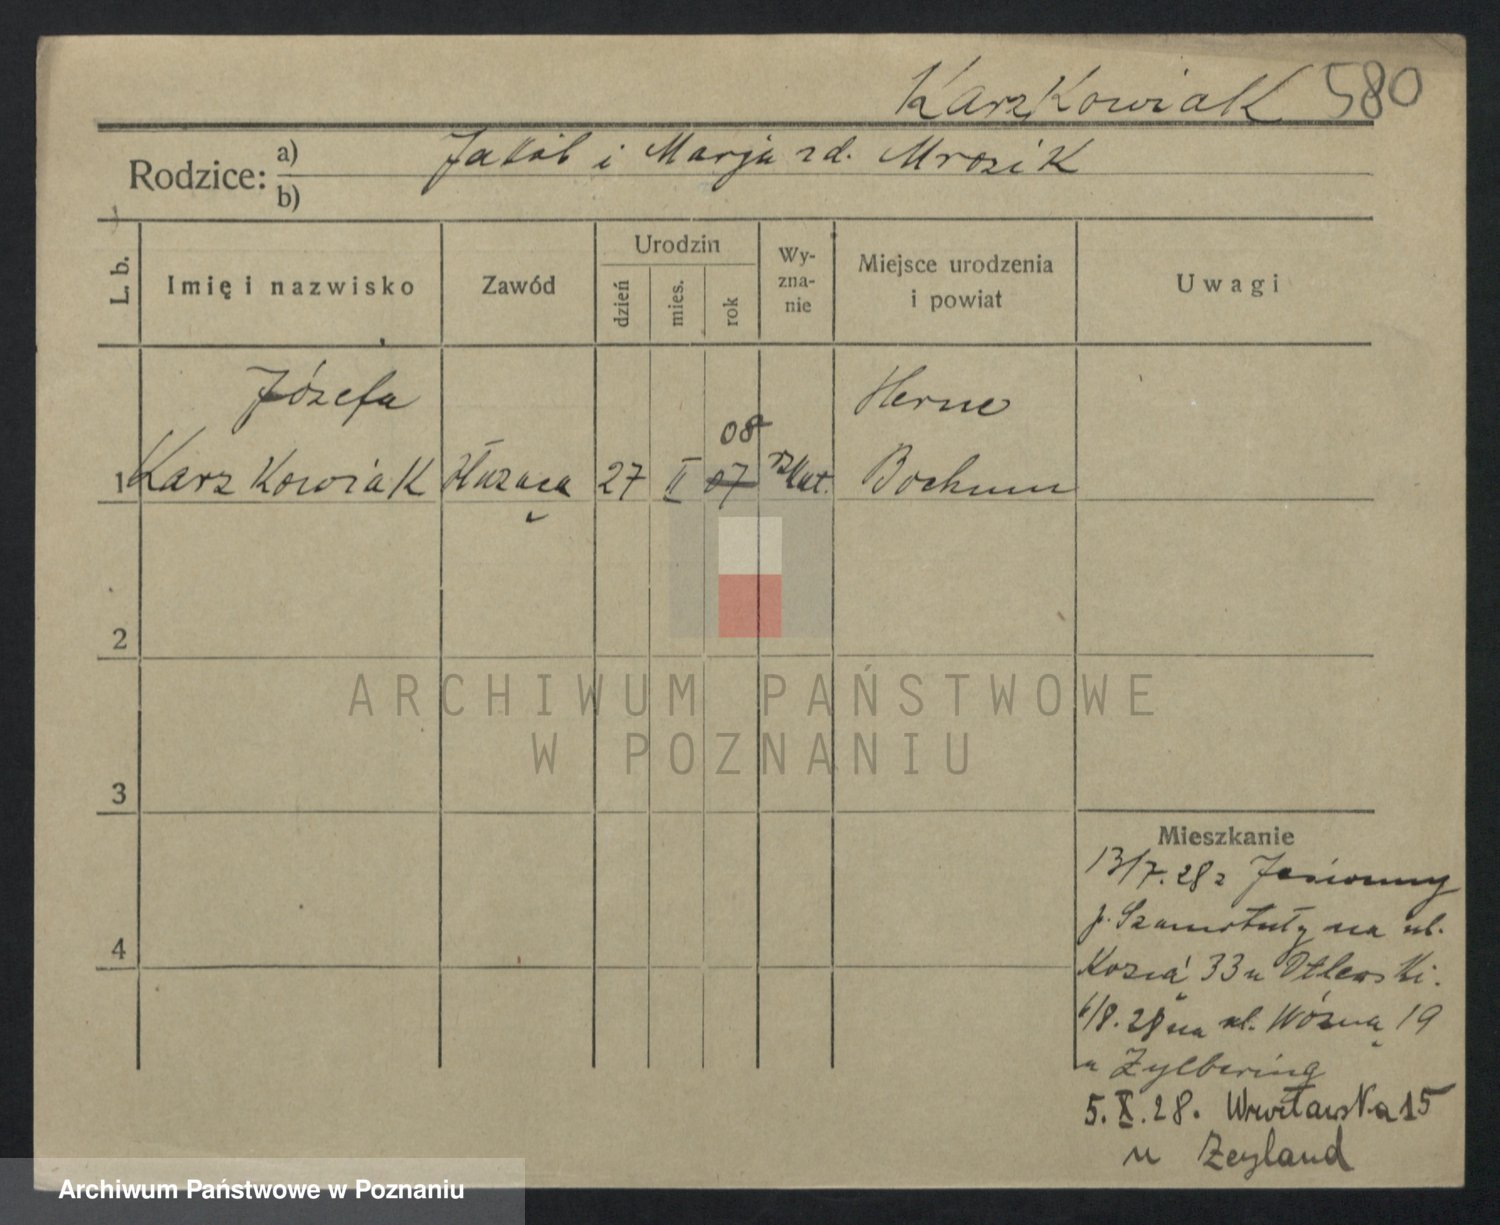 Karzkowiak 580
Rodzice: a) b)
Jakób i Marja zd. Mrozik
L. b.
Imię i nazwisko
Zawód
Urodzin
dzień
mies.
rok
Wy-
zna-
nie
Miejsce urodzenia
i powiat
Uwagi
Józefa
Herne
08
1 Karzkowiak służąca 27 II 07 rzkat. Bochum
2
3
4
ARCHIWUM PAŃSTWOWE
W POZNANIU
Mieszkanie
13/7.28 z
p. Szamotuły na ul.
Kozią 33 u Otlewski.
6/8.28 na ul. Woźną 19
u Zylbering
5.X.28. Wrocławska 15
u Zeyland
Archiwum Państwowe w Poznaniu